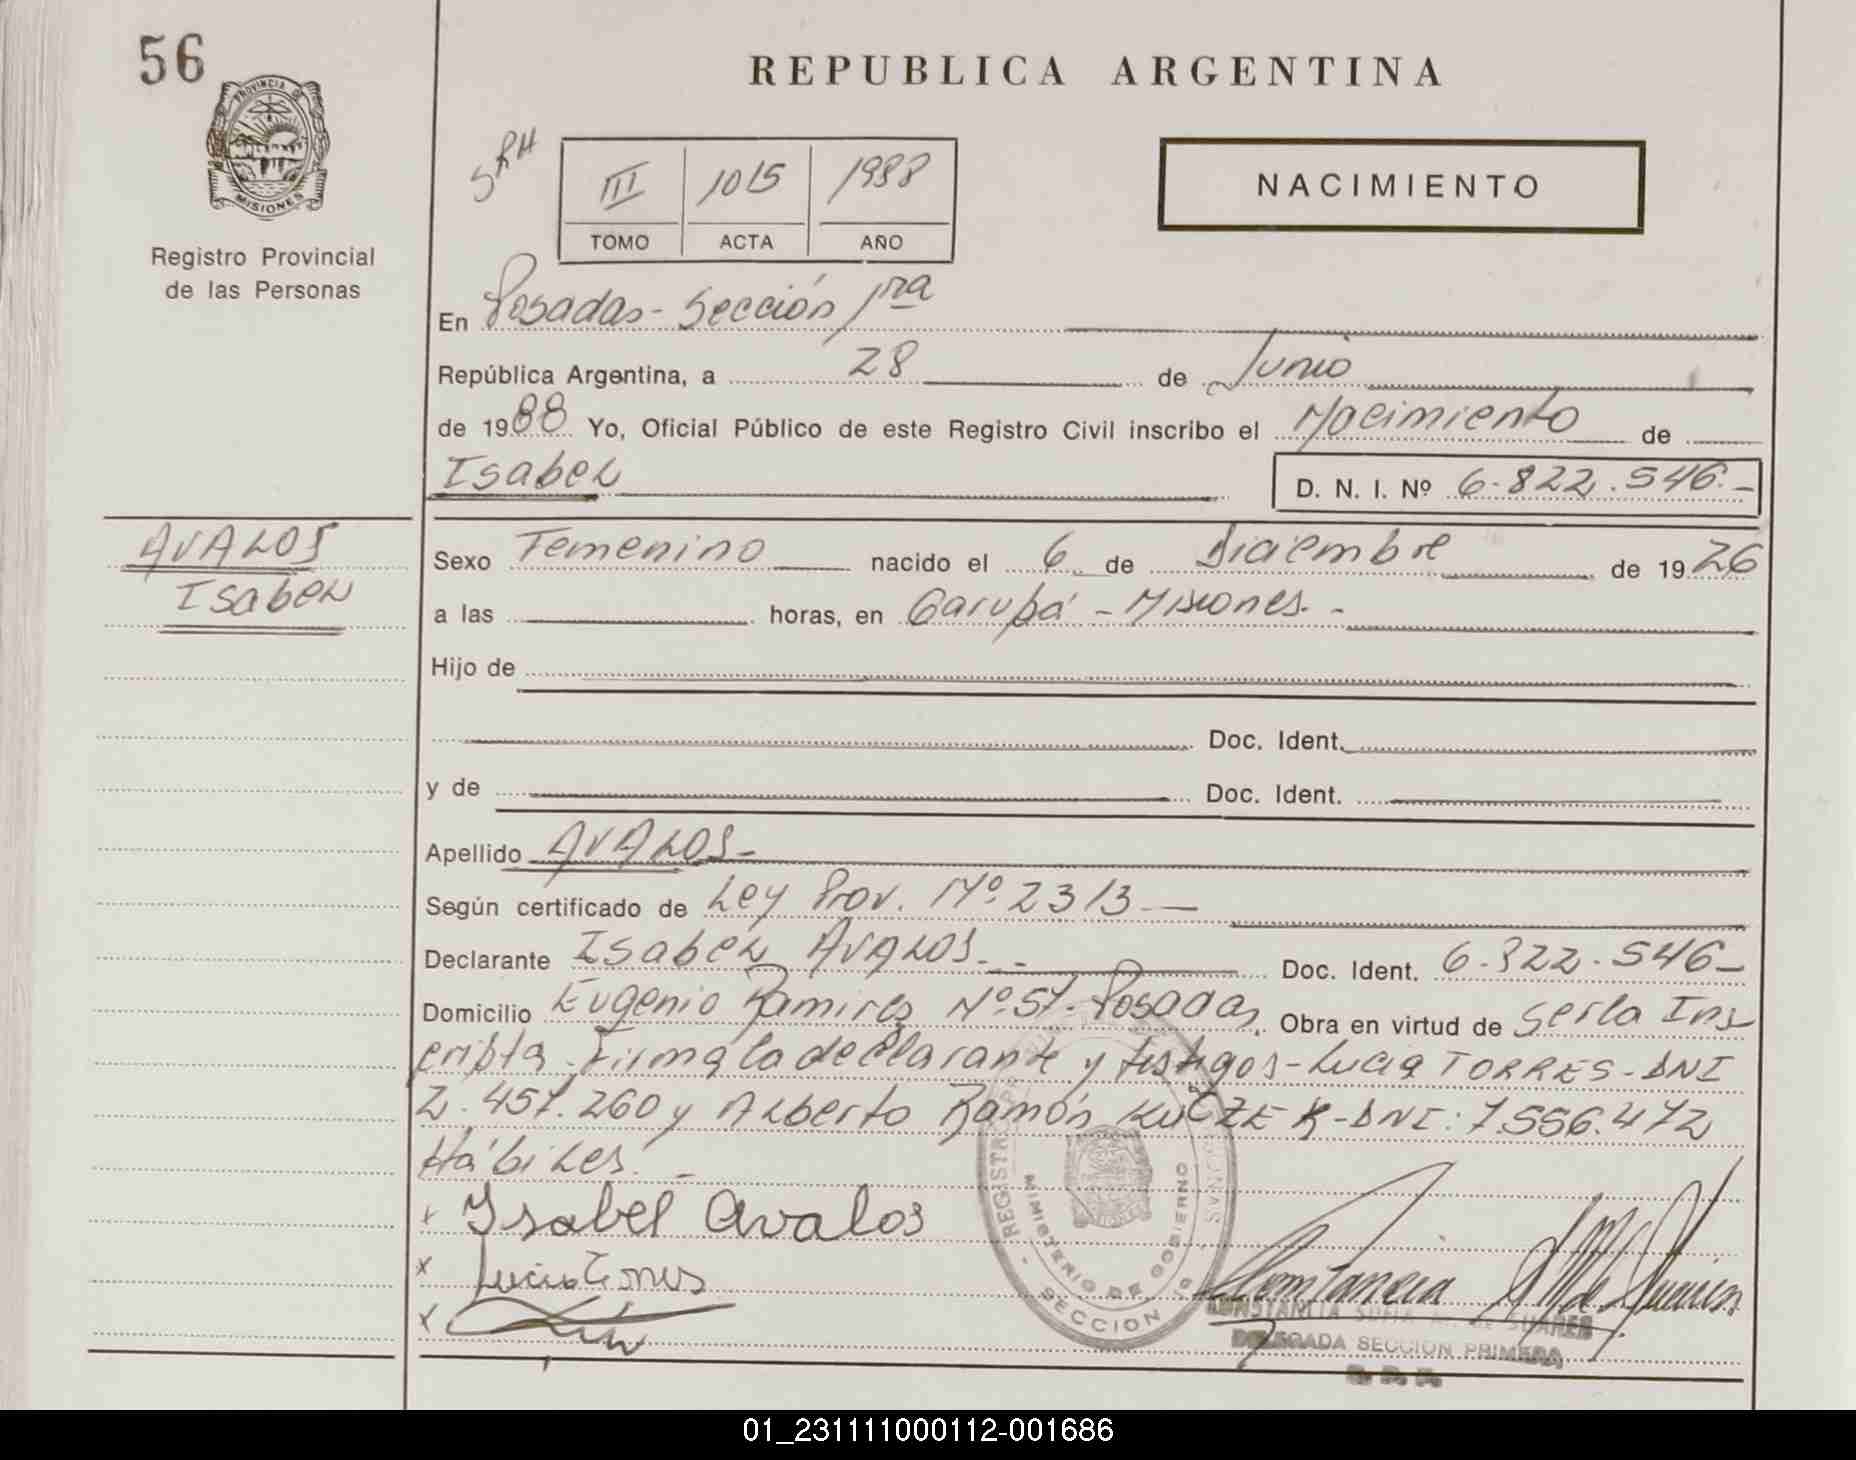 56
REPUBLICA ARGENTINA
PROVINCIA DE
MISIONES
Registro Provincial
de las Personas
SRH
III 1015 1988
TOMO ACTA AÑO
NACIMIENTO
En Posadas - Sección 1ra
República Argentina, a 28 de Junio
de 1988 Yo, Oficial Público de este Registro Civil inscribo el Nacimiento de
Isabel D. N. I. Nº 6.822.546.-
AVALOS
Isabel
Sexo Femenino nacido el 6 de Diciembre de 1926
a las horas, en Garupá - Misiones. -
Hijo de
Doc. Ident.
y de Doc. Ident.
Apellido AVALOS -
Según certificado de Ley Prov. Nº 2313 -
Declarante Isabel AVALOS. - Doc. Ident. 6.322.546 -
Domicilio Eugenio Ramires Nº 57. Posadas, Obra en virtud de serla Ins
cripta. Firma la declarante y testigos - Lucia TORRES - DNI
2.457.260 y Alberto Ramón - DNI: 7.556.472
Hábiles. -
x Isabel Avalos
x Lucia Torres
x
REGISTRO
MINISTERIO DE GOBIERNO
SECCION 1ª
CONSTANCIA SOFIA DE SUARES
DELEGADA SECCION PRIMERA
R. P. P.
01_231111000112-001686